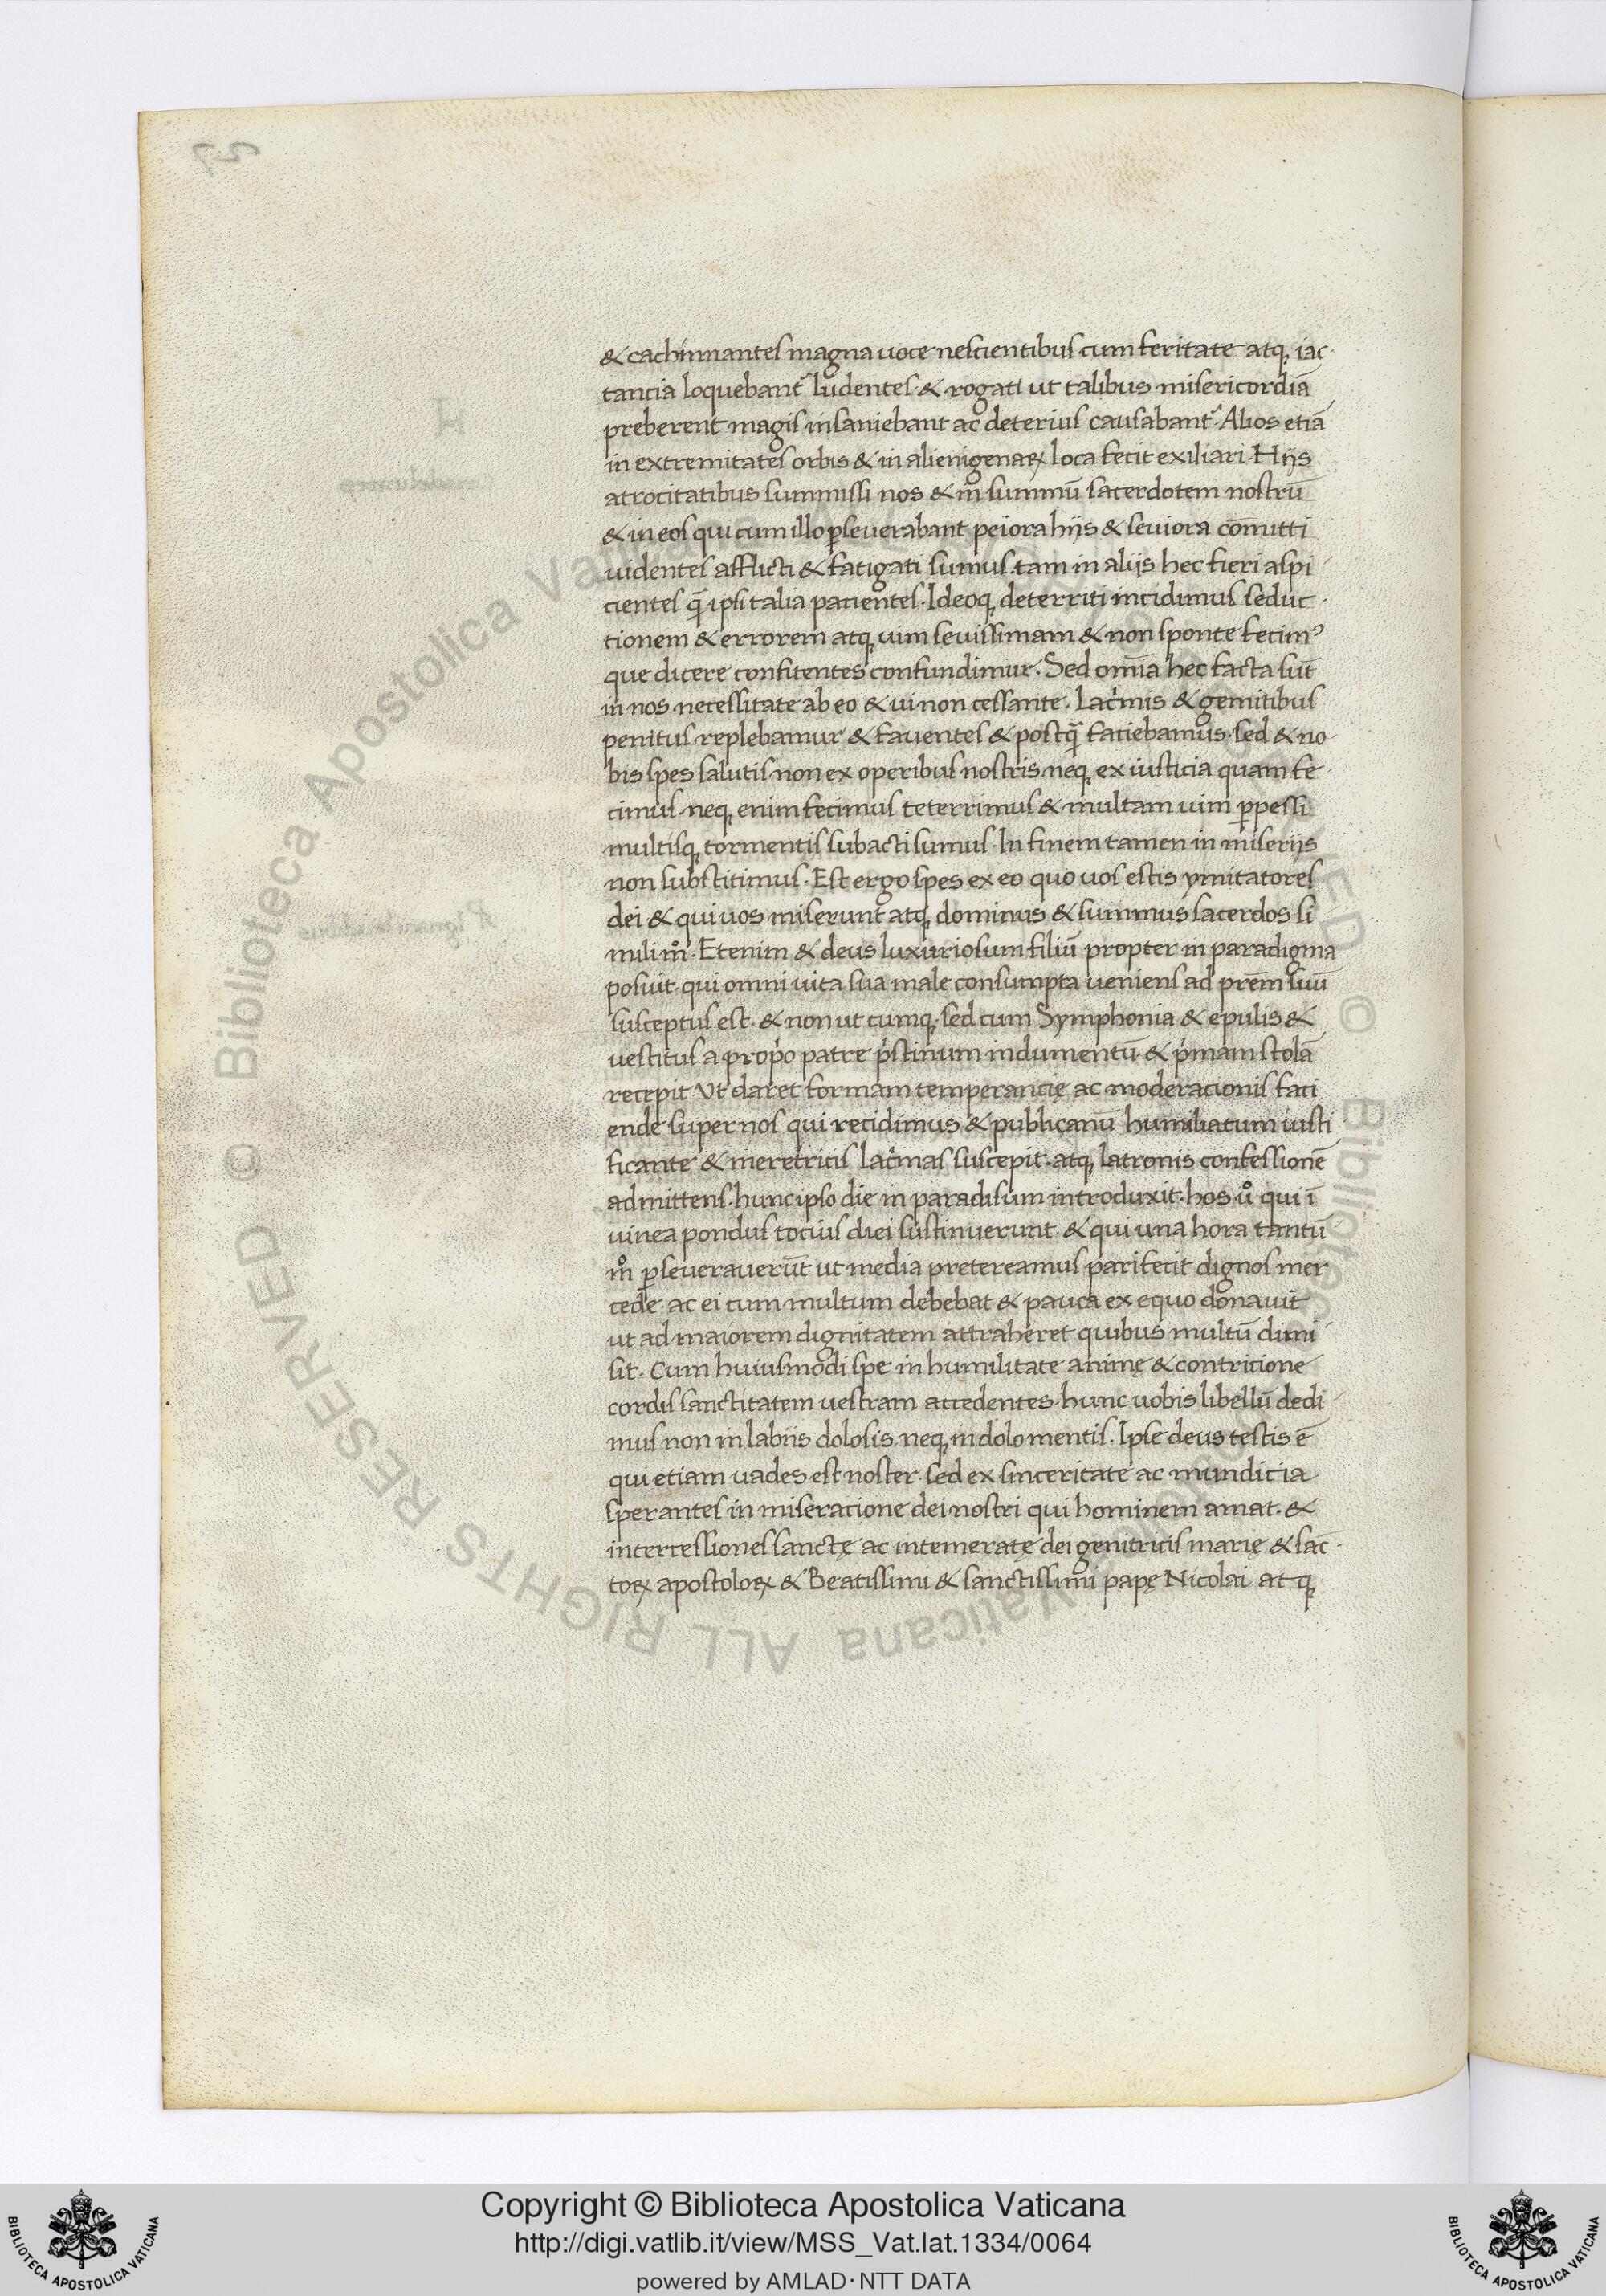 & cachinnantes magna uoce nescientibus cum feritate atq; iac-
tancia loquebant᷑ ludentes & rogati ut talibus misericordiā
preberent magis insaniebant ac deterius causabant᷑. Alios etiā
in extremitates orbis & in alienigenaꝝ loca fecit exiliari. Hijs
atrocitatibus summissi nos & in summū sacerdotem nostrū
& in eos qui cum illo ꝑseuerabant peiora hijs & seuiora cōmitti
uidentes afflicti & fatigati sumus. tam in alijs hec fieri aspi
cientes q̄ ipsi talia pacientes. Ideoq; deterriti incidimus seduc-
tionem & errorem atq; uim seuissimam & non sponte fecimꝰ
que dicere confitentes confundimur. Sed omīa hec facta sūt
in nos necessitate ab eo & ui non cessante. Lacͥmis & gemitibus
penitus replebamur & fauentes & postq̄ faciebamus. sed & no-
bis spes salutis non ex operibus nostris neq; ex iusticia quam fe
cimus. neq; enim fecimus teterrimus & multam uim ꝑpessi
multisq; tormentis subacti sumus. In finem tamen in miserijs
non substitimus. Est ergo spes ex eo quo uos estis ymitatores
dei & qui uos miserunt atq; dominus & summus sacerdos si
mili mͦ. Etenim & deus luxuriosum filiū propter in paradigma
posuit. qui omni uita sua male consumpta ueniens ad prēm suū
susceptus est. & non ut cumq; sed cum Symphonia & epulis &
uestitus a propͥo patre pͥstinum indumentū & pͥmam stolā
recepit Ut daret formam temperancię ac moderacionis faci
ende super nos qui recidimus & publicanū humiliatum iusti
ficante & meretricis lacͥmas suscepit. atq; latronis confessionē
admittens. hunc ipso die in paradisum introduxit. hos uͦ qui ī
uinea pondus tocius diei sustinuerunt. & qui una hora tantū
mͦ ꝑseuerauerūt ut media pretereamus pari fecit dignos mer
cede. ac ei cum multum debebat & pauca ex equo donauit
ut ad maiorem dignitatem attraheret quibus multū dimi
sit. Cum huiusmodi spe in humilitate animę & contricione
cordis sanctitatem uestram accedentes. hunc uobis libellū dedi-
mus non in labiis dolosis. neq; in dolo mentis. Ipse deus testis ē
qui etiam uades est noster. sed ex sinceritate ac mundicia
sperantes in miseracione dei nostri qui hominem amat. &
intercessiones sanctę ac intemeratę dei genitricis marię & sāc-
toꝝ apostoloꝝ & Beatissimi & sanctissimi papę Nicolai atq;
Copyright © Biblioteca Apostolica Vaticana
http://digi.vatlib.it/view/MSS_Vat.lat.1334/0064
powered by AMLAD·NTT DATA
BIBLIOTECA APOSTOLICA VATICANA
BIBLIOTECA APOSTOLICA VATICANA
© Biblioteca Apostolica Vaticana ALL RIGHTS RESERVED © Biblioteca Apostolica Vaticana ALL RIGHTS RESERVED